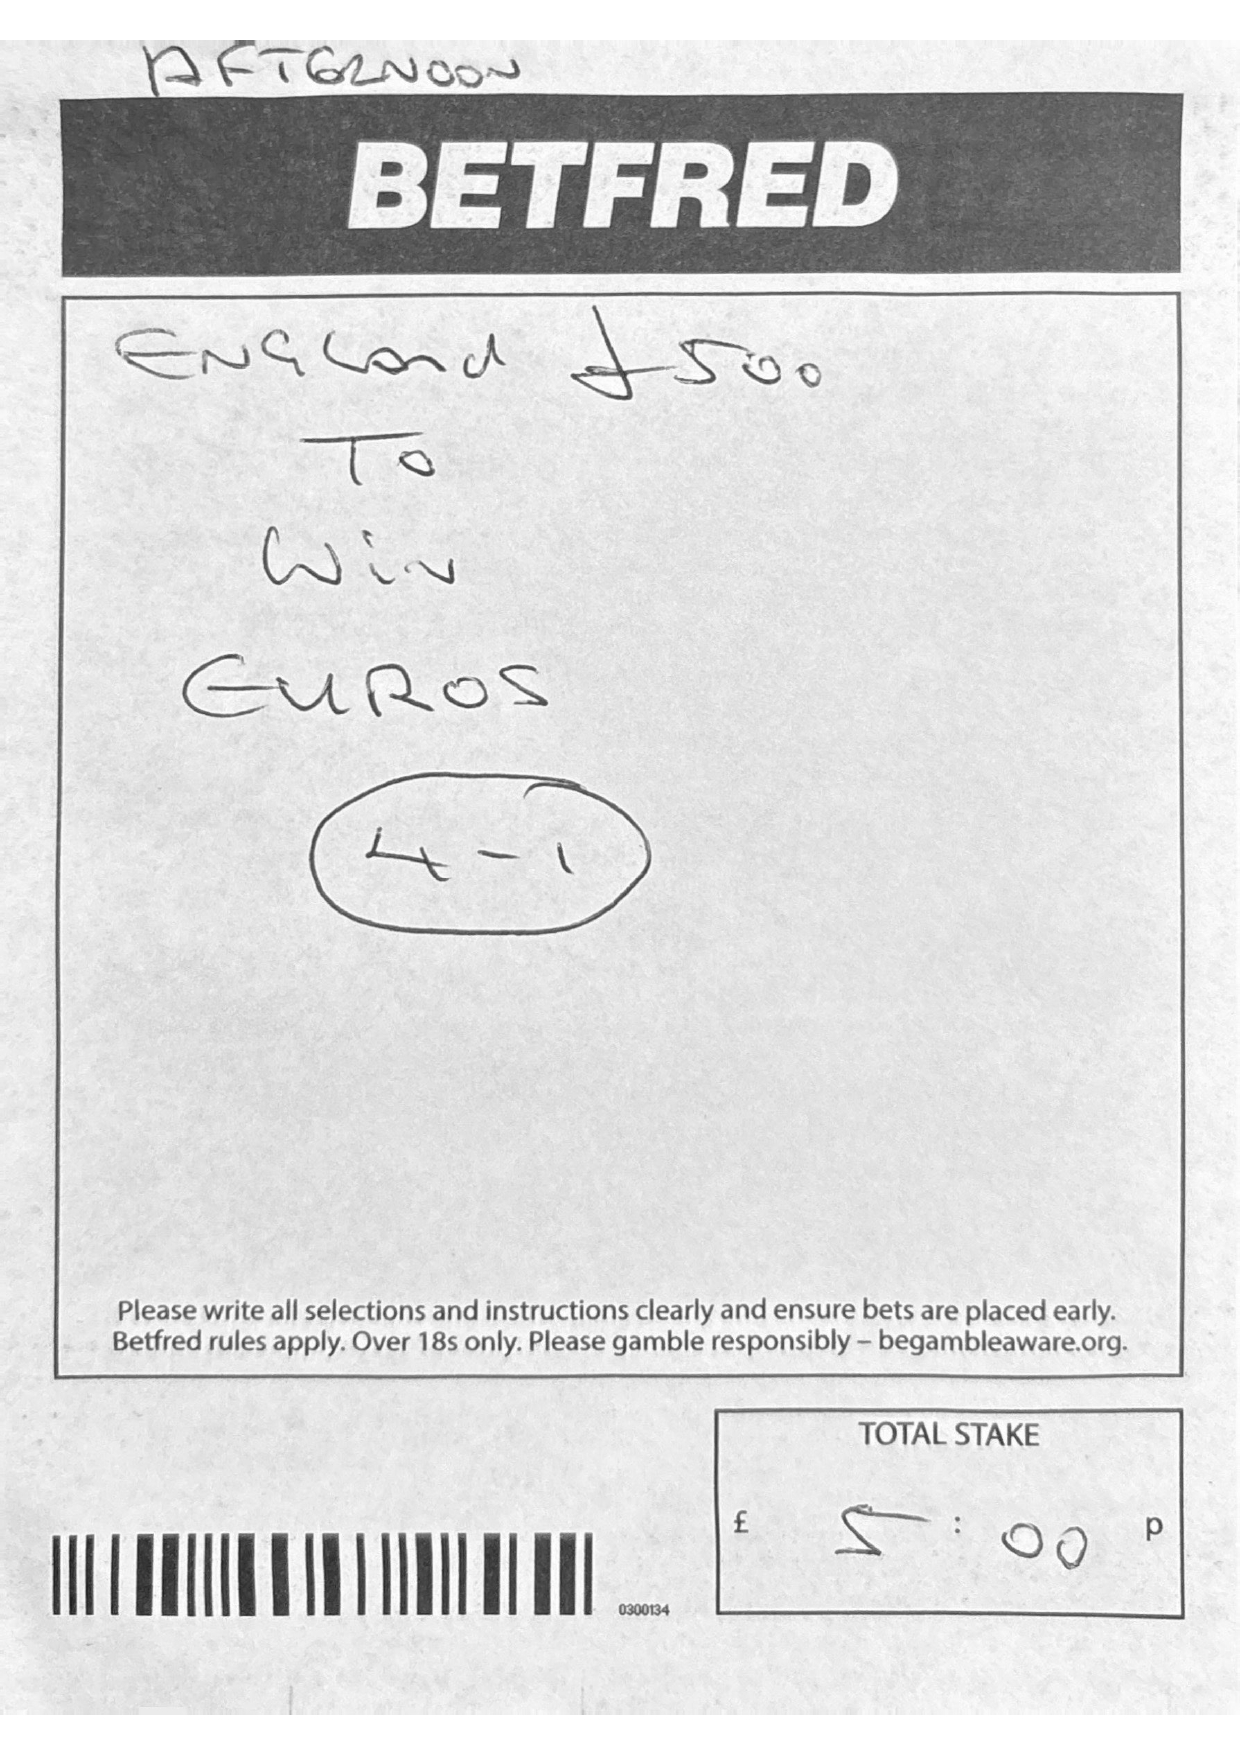 AFTERNOON
BETFRED
ENGLand £500
To
Win
EUROS
4-1
Please write all selections and instructions clearly and ensure bets are placed early.
Betfred rules apply. Over 18s only. Please gamble responsibly – begambleaware.org.
TOTAL STAKE
£ 5:00 p
0300134